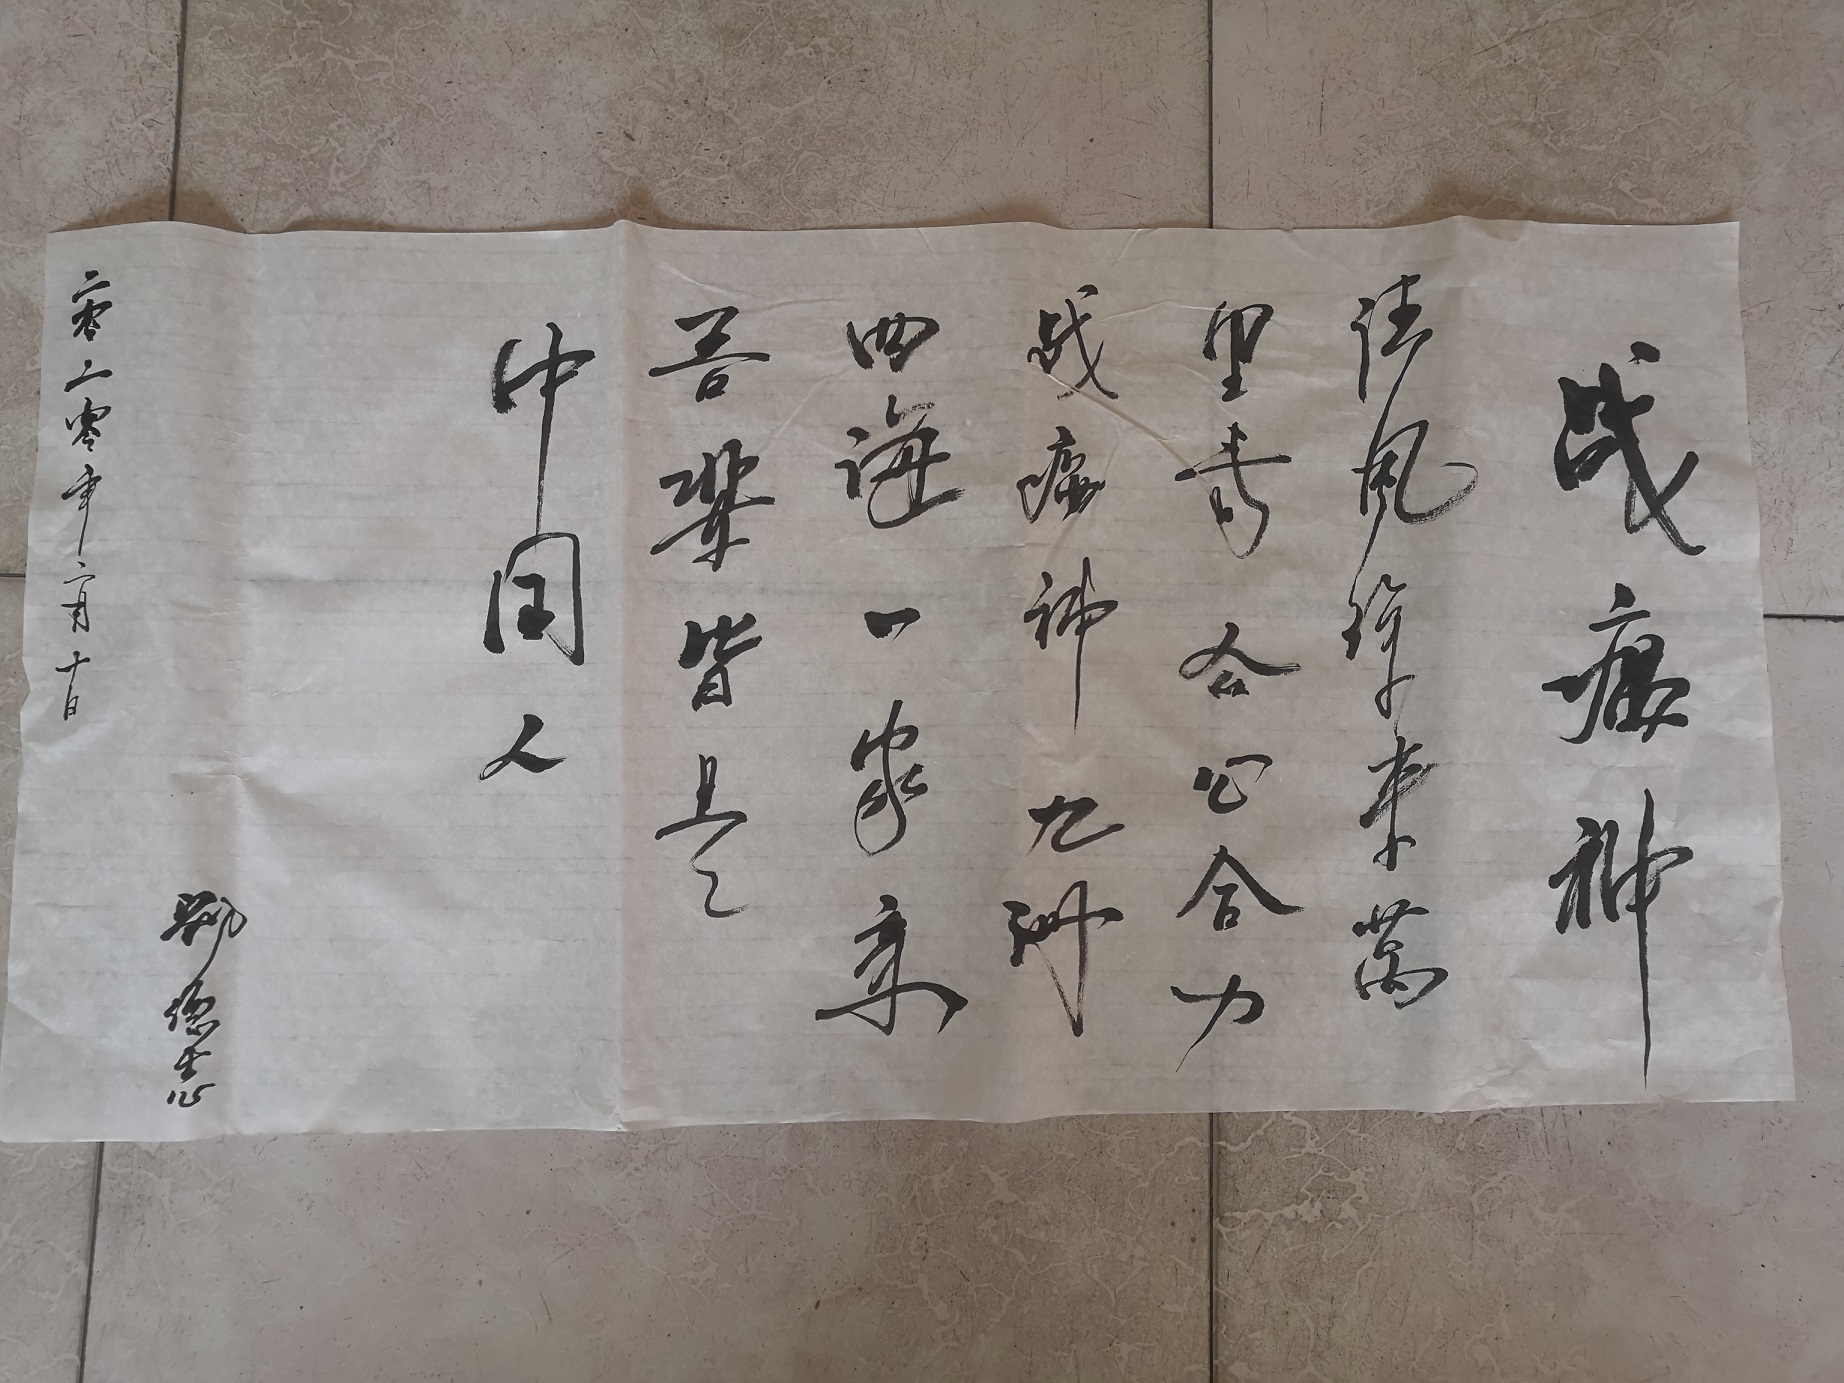 战瘟神
风来萬
里合心合力
战瘟神九州
四海一家亲
吾輩皆是
中国人
二零二零年二月十日
德志